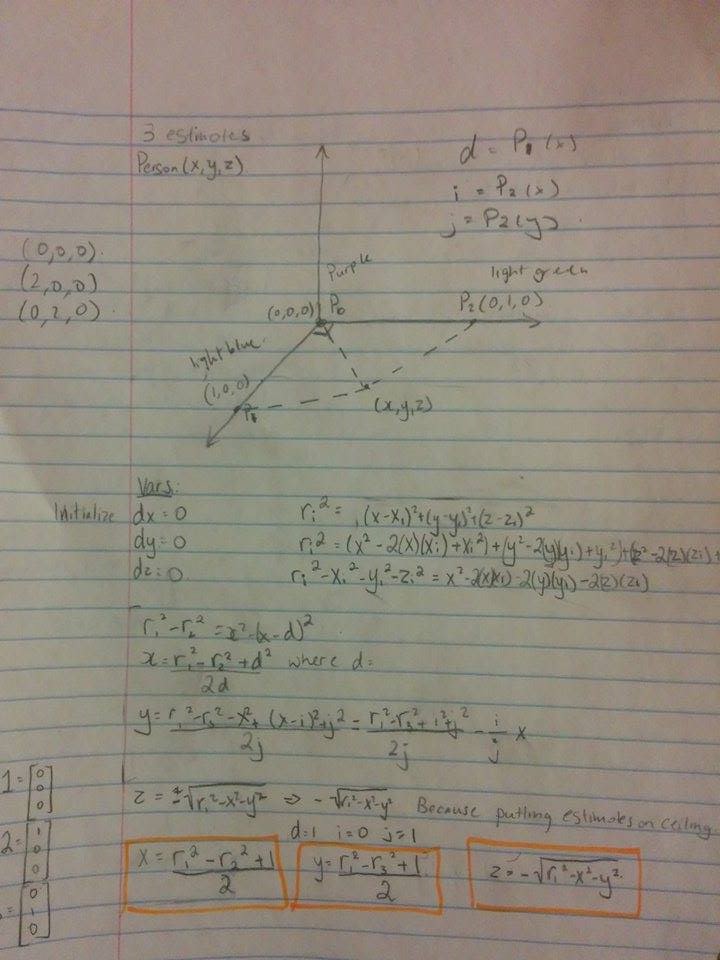 3 estimotes
Person(x,y,z)
d = P1(x)
i = P2(x)
j = P2(y)
(0,0,0)
(2,0,0)
(0,2,0)
Purple
light green
(0,0,0) P0
P2(0,1,0)
light blue
(1,0,0)
P1
(x,y,z)
Vars:
Initialize dx = 0
dy = 0
dz = 0
ri² = (x-xi)²+(y-yi)²+(z-zi)²
ri² = (x² - 2(x)(xi) + xi²) + (y² - 2(y)(yi) + yi²) + (z² - 2(z)(zi) +
ri² - xi² - yi² - zi² = x² - 2(x)(xi) - 2(y)(yi) - 2(z)(zi)
r1² - r2² = x² - (x-d)²
x = r1² - r2² + d² / 2d where d =
y = r1² - r3² - x² + (x-i)² + j² / 2j = r1² - r3² + i² + j² / 2j - i/j x
z = ±√r1²-x²-y² ⇒ -√r1²-x²-y² Because putting estimotes on ceiling
d=1 i=0 j=1
x = r1² - r2² + 1 / 2
y = r1² - r3² + 1 / 2
z = -√r1²-x²-y²
1 = [0 0 0]
2 = [1 0 0]
= [0 1 0]